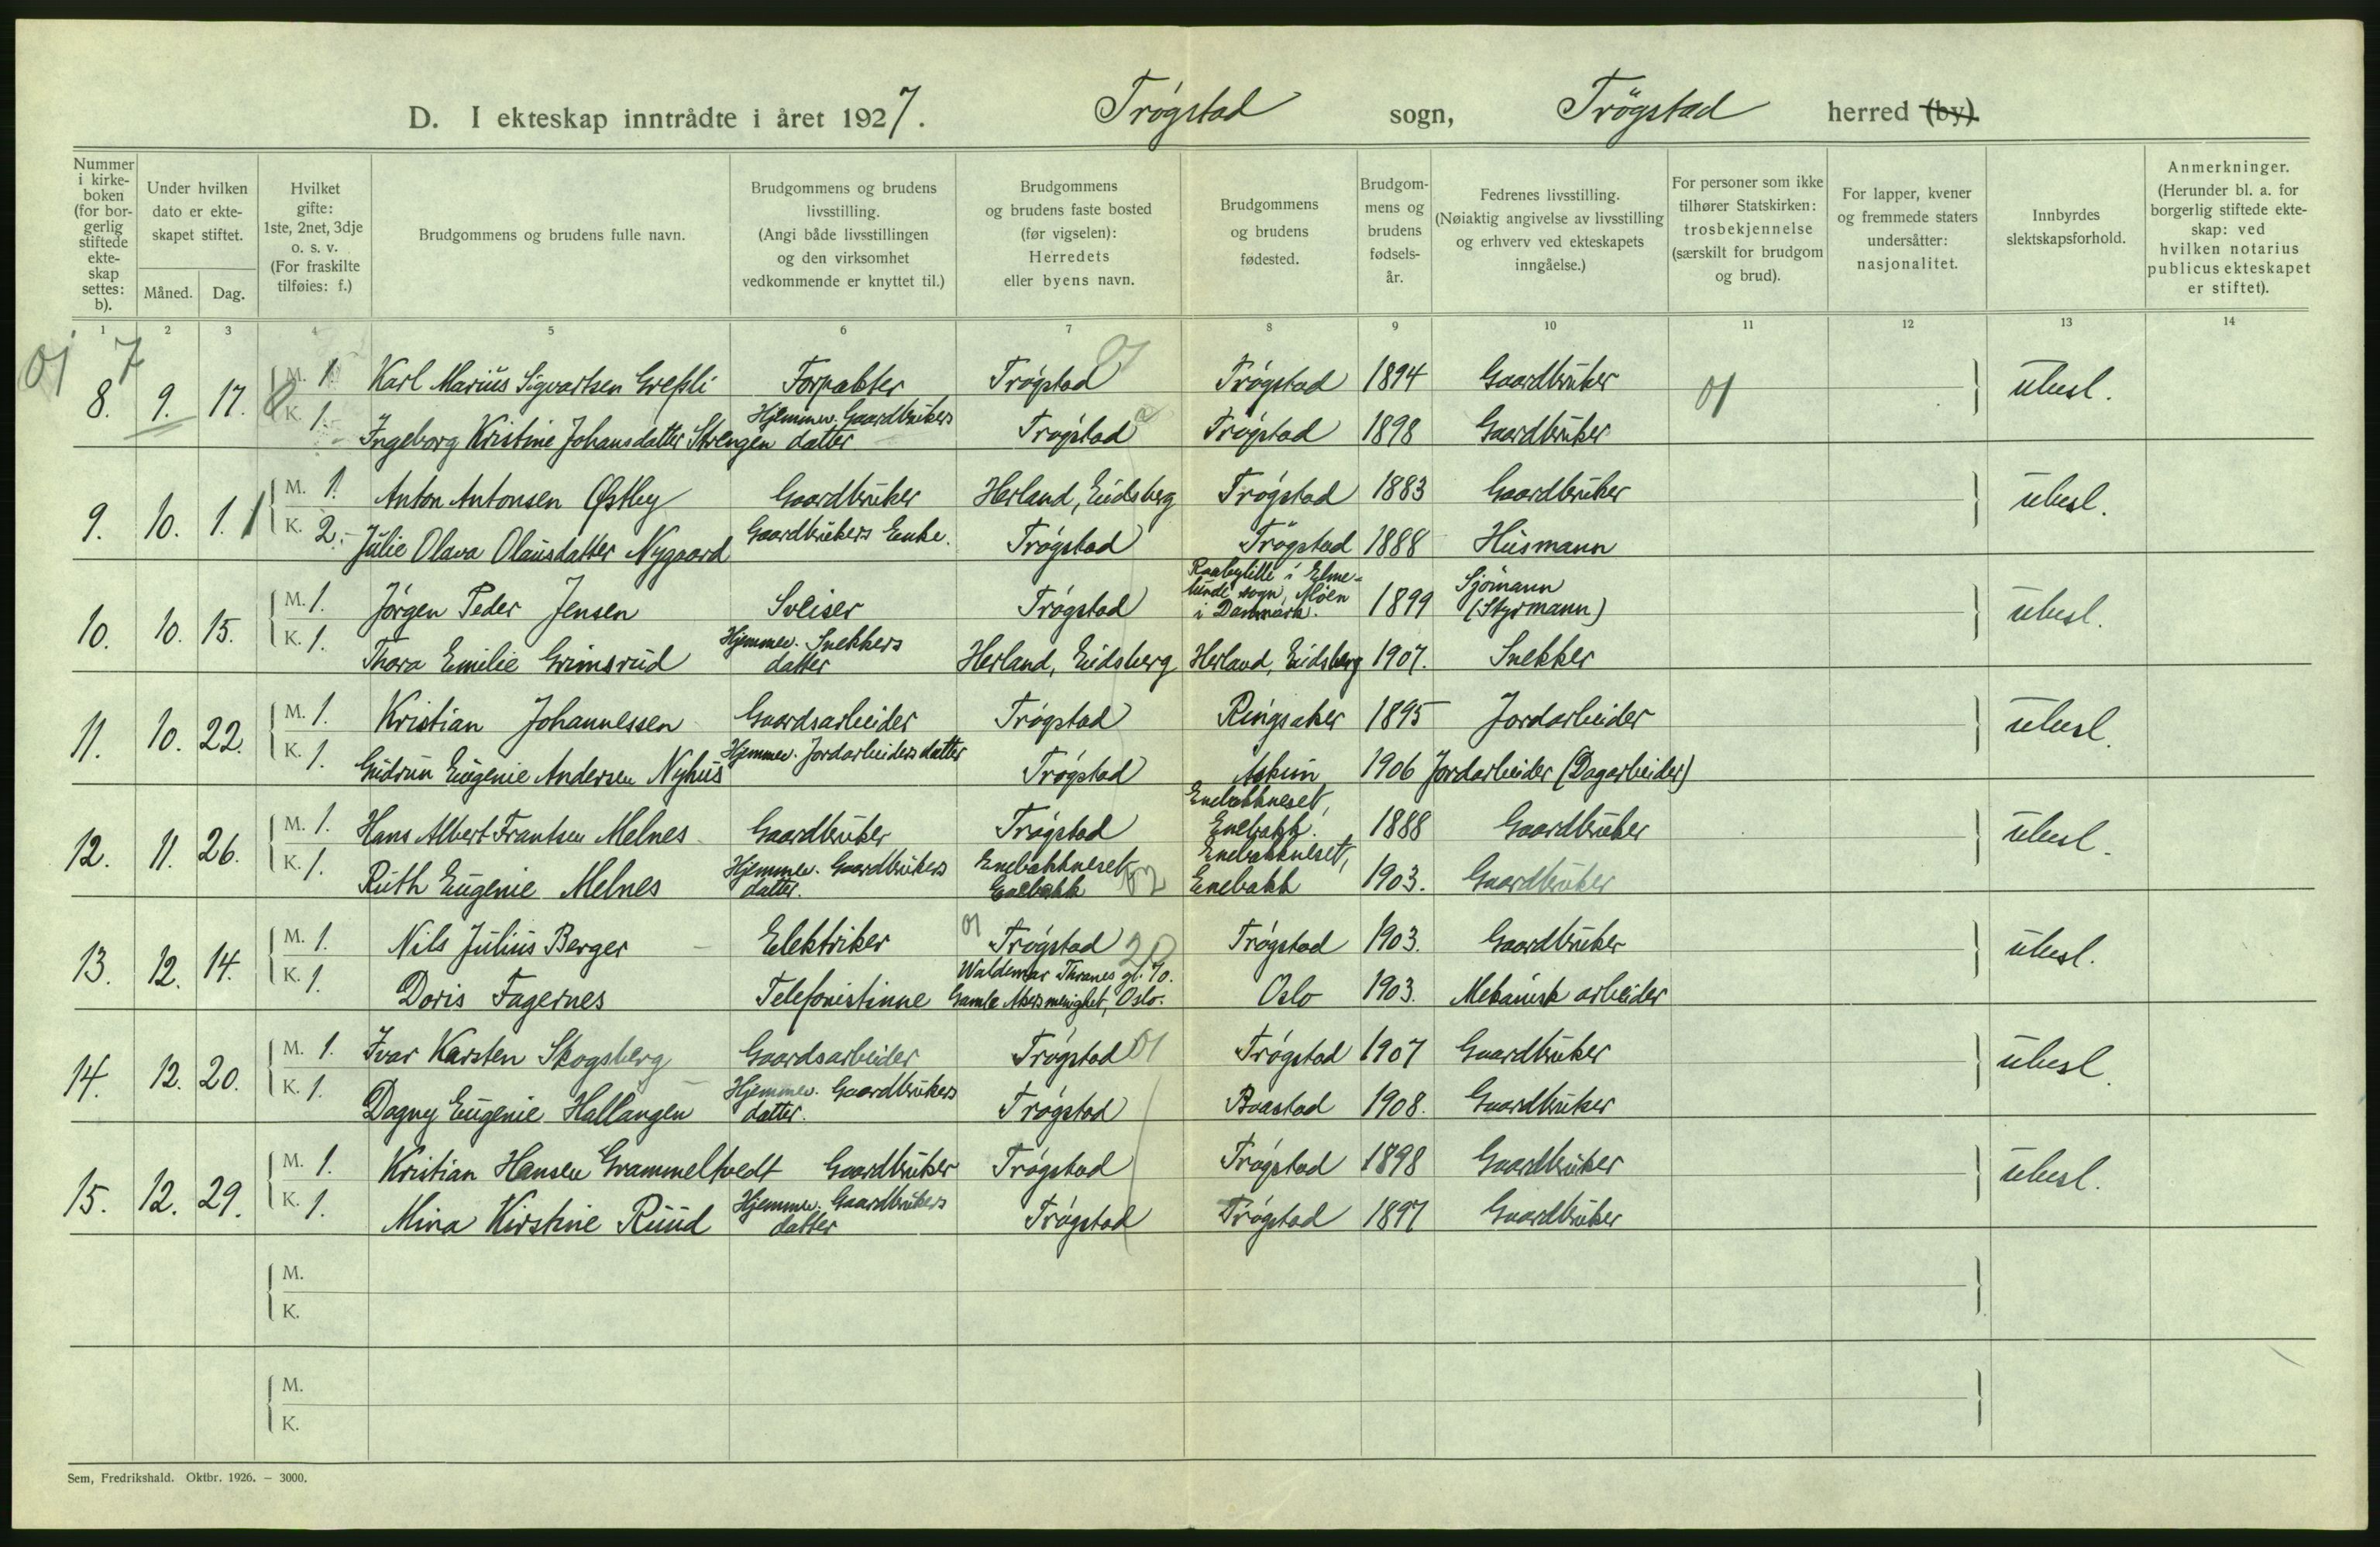 D. I ekteskap inntrådte i året 1927. Trøgstad sogn, Trögstad herred (by).
Nummer i kirke-boken (for bor-gerlig stiftede ekte-skap settes: b).
Under hvilken dato er ekte-skapet stiftet.
Måned. Dag.
Hvilket gifte: 1ste, 2net, 3dje o. s. v. (For fraskilte tilføies: f.)
Brudgommens og brudens fulle navn.
Brudgommens og brudens livsstilling. (Angi både livsstillingen og den virksomhet vedkommende er knyttet til.)
Brudgommens og brudens faste bosted (før vigselen): Herredets eller byens navn.
Brudgommens og brudens fødested.
Brudgom-mens og brudens fødsels-år.
Fedrenes livsstilling. (Nøiaktig angivelse av livsstilling og erhverv ved ekteskapets inngåelse.)
For personer som ikke tilhører Statskirken: trosbekjennelse (særskilt for brudgom og brud).
For lapper, kvener og fremmede staters undersåtter: nasjonalitet.
Innbyrdes slektskapsforhold.
Anmerkninger. (Herunder bl. a. for borgerlig stiftede ekte-skap: ved hvilken notarius publicus ekteskapet er stiftet).
1 2 3 4 5 6 7 8 9 10 11 12 13 14
01 7
8. 9. 17. M. 1. Karl Marius Sigvartsen Grefsli Forpakter Trøgstad Trøgstad 1894 Gaardbruker 01 ubesl.
K. 1. Ingeborg Kristine Johansdatter Strengen Hjemmev. Gaardbrukers datter Trøgstad Trøgstad 1898 Gaardbruker
9. 10. 1. M. 1. Anton Antonsen Østby Gaardbruker Herland, Eidsberg Trøgstad 1883 Gaardbruker ubesl.
K. 2. Julie Olava Olausdatter Nygaard Gaardbrukers Enke. Trøgstad Trøgstad 1888 Husmann
10. 10. 15. M. 1. Jörgen Peder Jensen Sveiser Trøgstad Raabylille i Elme-lunde sogn, Møen i Danmark. 1899 Sjömann (Styrmann) ubesl.
K. 1. Thora Emilie Grimsrud Hjemmev. Snekkers datter Herland, Eidsberg Herland, Eidsberg 1907. Snekker
11. 10. 22. M. 1. Kristian Johannessen Gaardsarbeider Trøgstad Ringsaker 1895 Jordarbeider ubesl.
K. 1. Gudrun Eugenie Andersen Nyhus Hjemmev. Jordarbeiders datter Trøgstad Askim 1906 Jordarbeider (Dagarbeider)
12. 11. 26. M. 1. Hans Albert Frantsen Melnes Gaardbruker Trøgstad Enebakkneset, Enebakk. 1888 Gaardbruker ubesl.
K. 1. Ruth Eugenie Melnes Hjemmev. Gaardbrukers datter. Enebakkneset Enebakk 02 Enebakkneset, Enebakk 1903. Gaardbruker
13. 12. 14. M. 1. Nils Julius Berger Elektriker 01 Trøgstad 20 Trøgstad 1903. Gaardbruker ubesl.
K. 1. Doris Fagernes Telefonistinne Waldemar Thranes gt. 70. Gamle Akers menighet, Oslo. Oslo 1903. Mekanisk arbeider
14. 12. 20. M. 1. Ivar Karsten Skogsberg Gaardsarbeider Trøgstad 01 Trøgstad 1907 Gaardbruker ubesl.
K. 1. Dagny Eugenie Hallangen Hjemmev. Gaardbrukers datter. Trøgstad Baastad 1908. Gaardbruker
15. 12. 29. M. 1. Kristian Hansen Grammeltvedt Gaardbruker Trøgstad Trøgstad 1898 Gaardbruker ubesl.
K. 1. Mina Kirstine Ruud Hjemmev. Gaardbrukers datter Trøgstad Trøgstad 1897 Gaardbruker
M.
K.
M.
K.
Sem, Fredrikshald. Oktbr. 1926. — 3000.